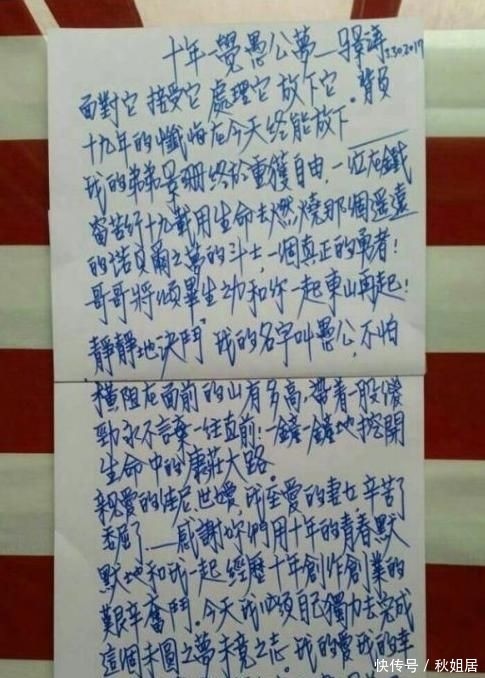 十年一覺愚公夢—景濤 3.30.2017
面對它 接受它 處理它 放下它。背負
十九年的懺悔在今天終能放下
我的弟弟景珊終於重獲自由，一位在鐵
窗苦行十九載用生命去燃燒那個遥遠
的諾貝爾之夢的斗士，一個真正的勇者！
哥哥將傾畢生之力和你一起東山再起！
靜靜地決鬥 我的名字叫愚公，不怕
橫阻在面前的山有多高，帶着一股傻
勁永不言棄一往直前！一鏟一鏟地挖開
生命中的康莊大路。
親愛的佳尼，世嬡，我至愛的妻女，辛苦了
委屈了——感謝妳們用十年的青春默
默地和我一起經歷十年創作創業的
艱辛奮鬥。今天我必須自己獨力去完成
這個未圓之夢未竟之志。我的愛我的幸
快传号 / 秋姐居